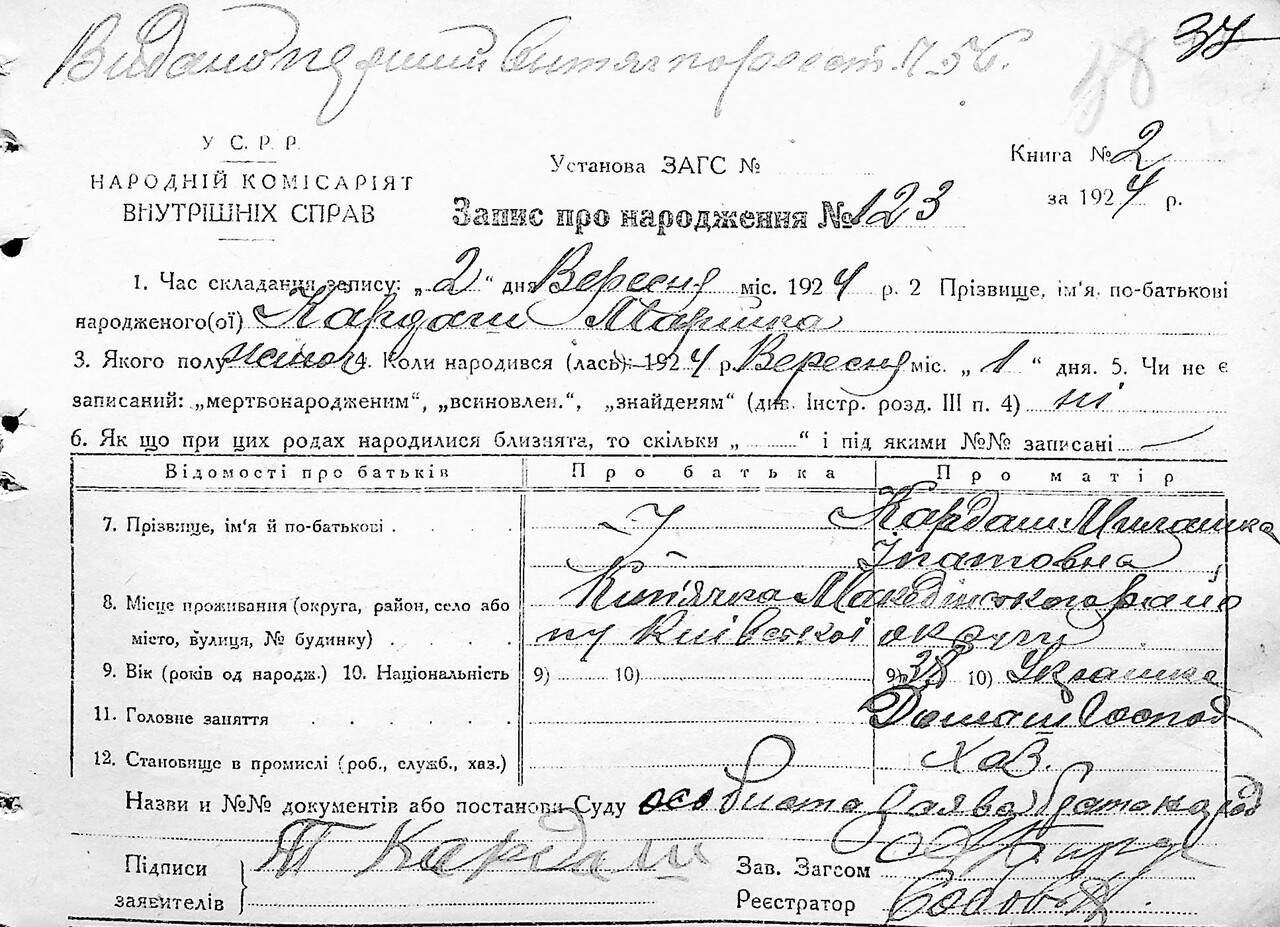 Видано перший витяг по реєст. 7.56.
37
38
У С. Р. Р.
НАРОДНІЙ КОМІСАРІЯТ
ВНУТРІШНІХ СПРАВ
Установа ЗАГС №
Книга № 2
за 1924 р.
Запис про народження № 123
1. Час складання запису: „ 2 “ дня Вересня міс. 1924 р. 2 Прізвище, ім'я, по-батькові
народженого(ої) Кардаш Марійка
3. Якого полу жіноч 4. Коли народився (лась) 1924 р. Вересня міс. „ 1 “ дня. 5. Чи не є
записаний: „мертвонародженим“, „всиновлен.“, „знайденям“ (див. Інстр. розд. III п. 4) ні
6. Як що при цих родах народилися близнята, то скільки „ “ і під якими №№ записані —
Відомості про батьків Про батька Про матір
7. Прізвище, ім'я й по-батькові Кардаш Милашка
Іпатовна
8. Місце проживання (округа, район, село або Кип'ячка Макідінського райо
місто, вулиця, № будинку) ну Київської округи
9. Вік (років од народж.) 10. Національність 9) 10) 9) 38 10) Українка
11. Головне заняття Домаш Господ
12. Становище в промислі (роб., служб., хаз.) Хаз.
Назви и №№ документів або постанови Суду особиста заява брата
Підписи
заявителів
Т Кардаш
Зав. Загсом
Реєстратор